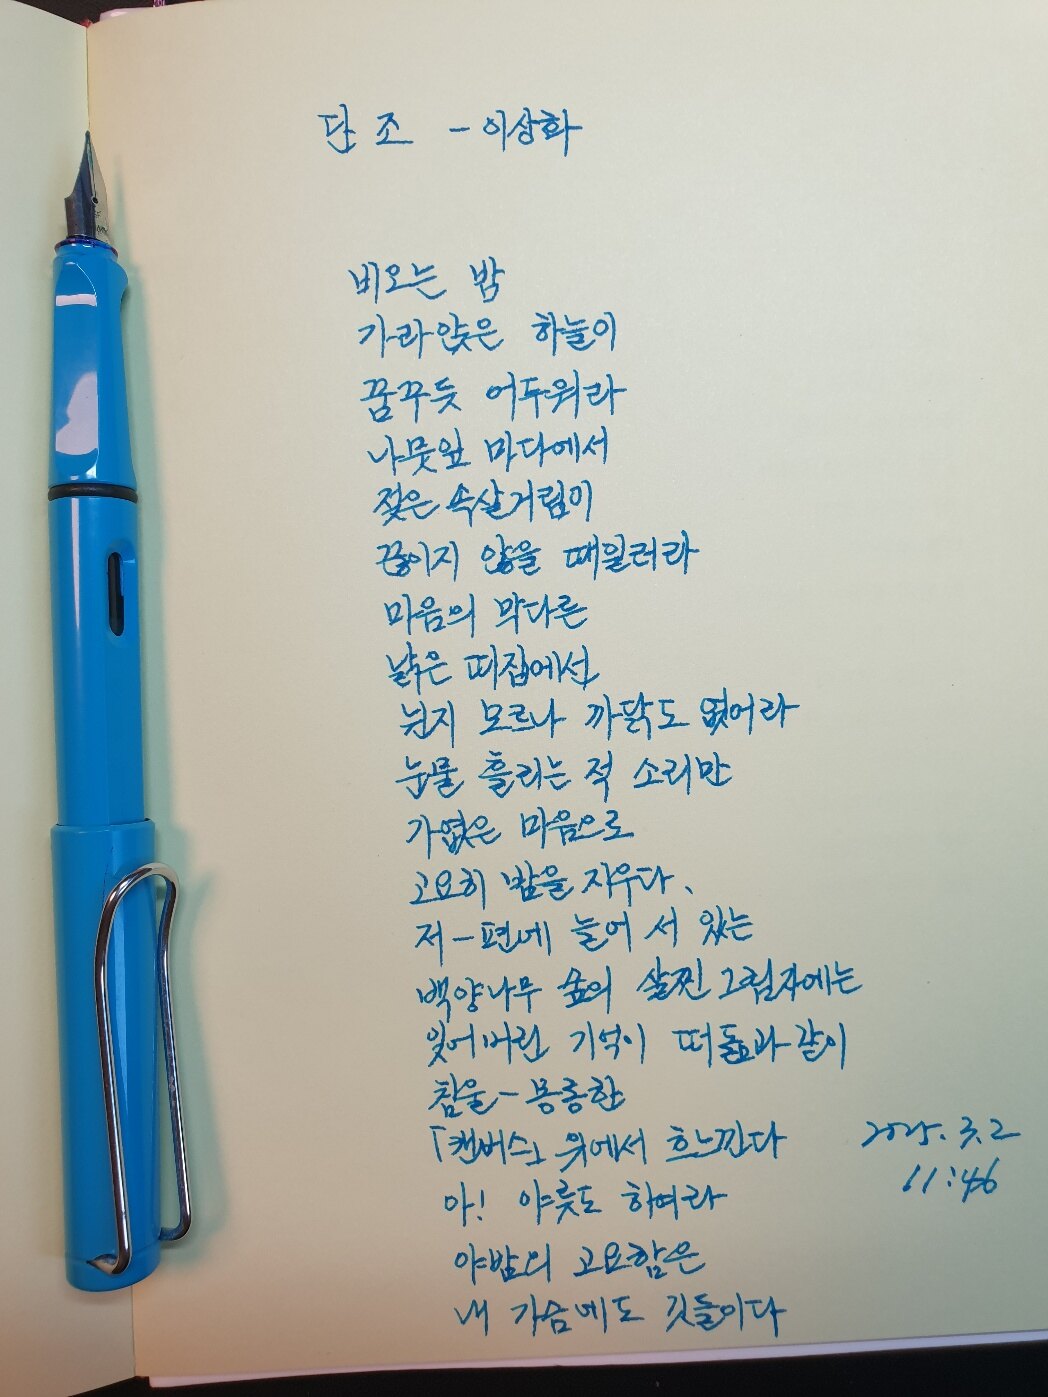 단조 - 이상화
비오는 밤
가라앉은 하늘이
꿈꾸듯 어두워라
나뭇잎 마다에서
젖은 속살거림이
끊이지 않을 때일러라
마음의 막다른
낡은 띠집에선
뉜지 모르나 까닭도 없어라
눈물 흘리는 적 소리만
가엾은 마음으로
고요히 밤을 지우다.
저-편에 늘어 서 있는
백양나무 숲의 살찐 그림자에는
잊어버린 기억이 떠돎과 같이
침울-몽롱한
「캔버스」 위에서 흐느낀다
2025.3.2
11:46
아! 야릇도 하여라
야밤의 고요함은
내 가슴에도 깃들이다